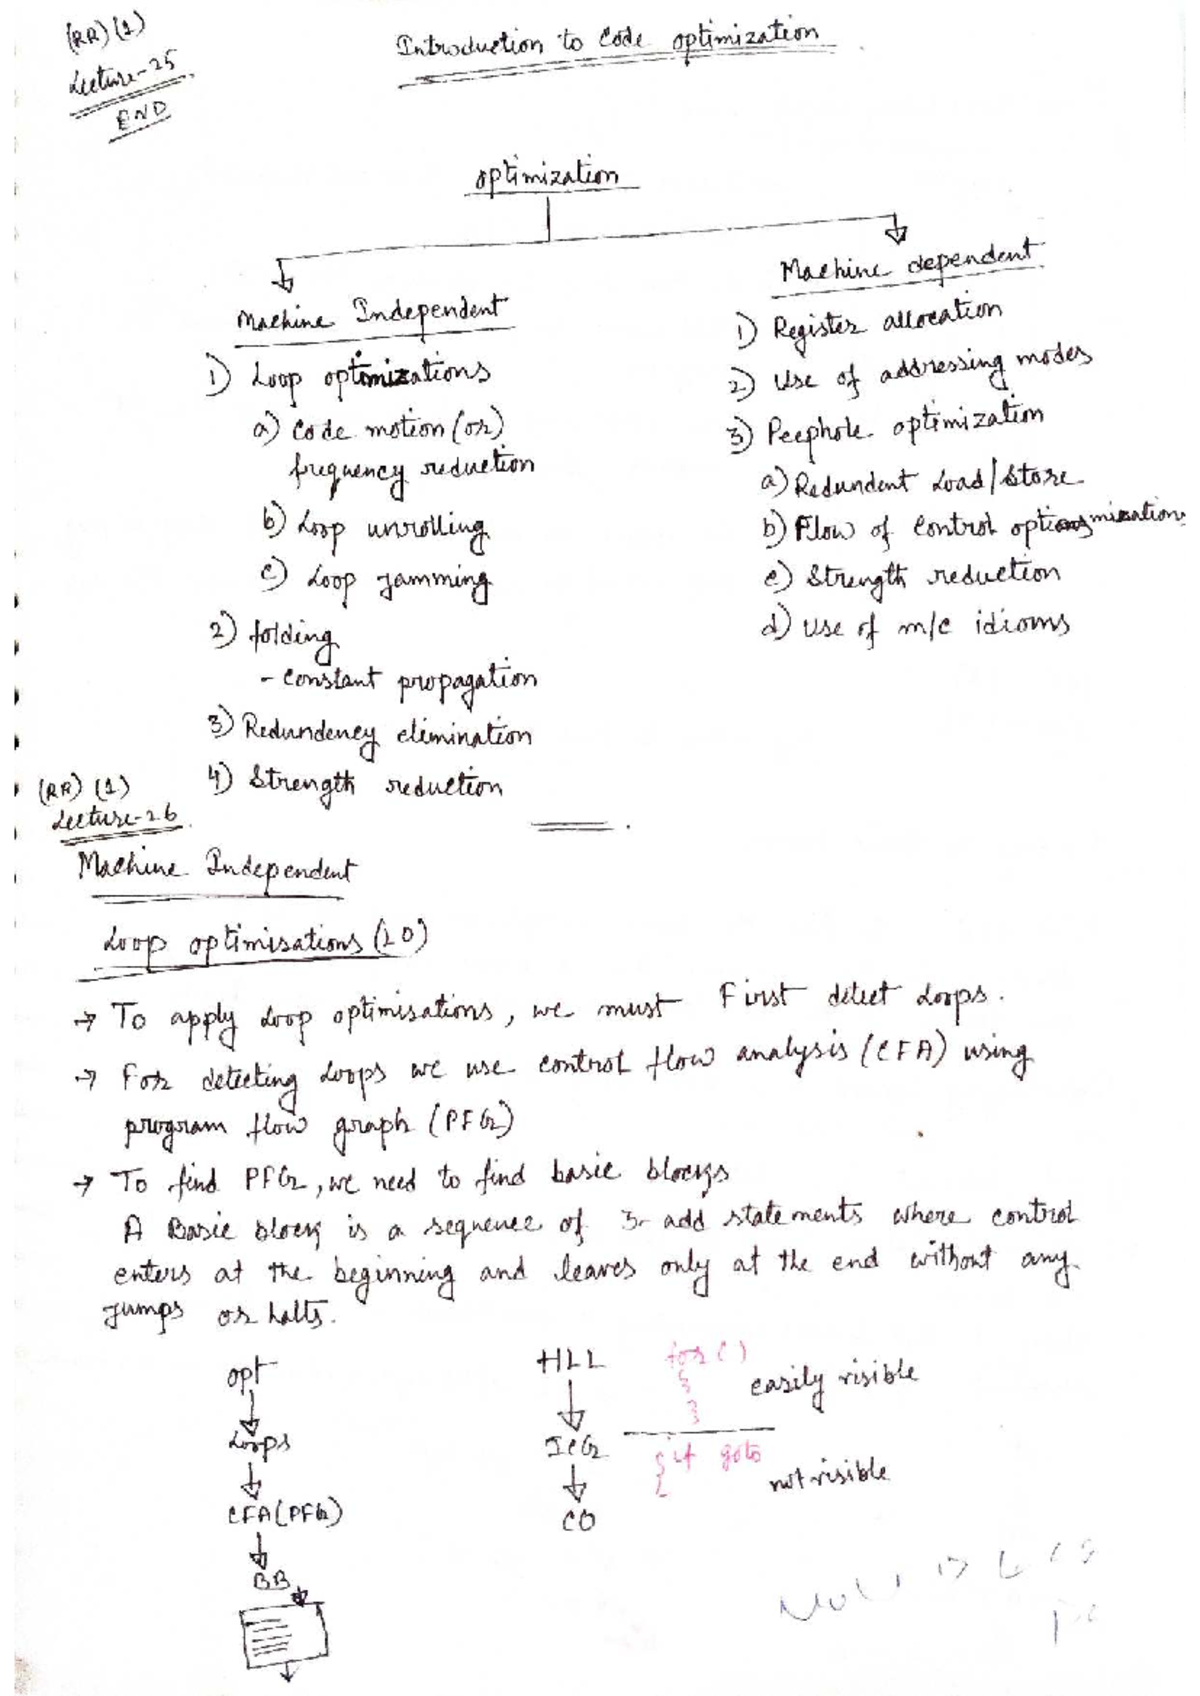 (RR) (1)
Lecture-25
END
Introduction to Code optimization
optimization
Machine Independent
1) Loop optimizations
a) Code motion (or)
frequency reduction
b) Loop unrolling
c) Loop jamming
2) folding
- constant propagation
3) Redundency elimination
4) Strength reduction
Machine dependent
1) Register allocation
2) Use of addressing modes
3) Peephole optimization
a) Redundent Load/store
b) Flow of control optimization
c) Strength reduction
d) Use of m/c idioms
(RR) (1)
Lecture-26
Machine Independent
Loop optimisations (LO)
→ To apply Loop optimisations, we must First detect Loops.
→ For detecting Loops we use control flow analysis (CFA) using
program flow graph (PFG)
→ To find PFG, we need to find basic blocks
A Basic block is a sequence of 3-add statements where control
enters at the beginning and leaves only at the end without any
jumps or halts.
opt
Loops
CFA(PFG)
BB
HLL
ICG
CO
for ( )
{
}
easily visible
{ if goto
not visible